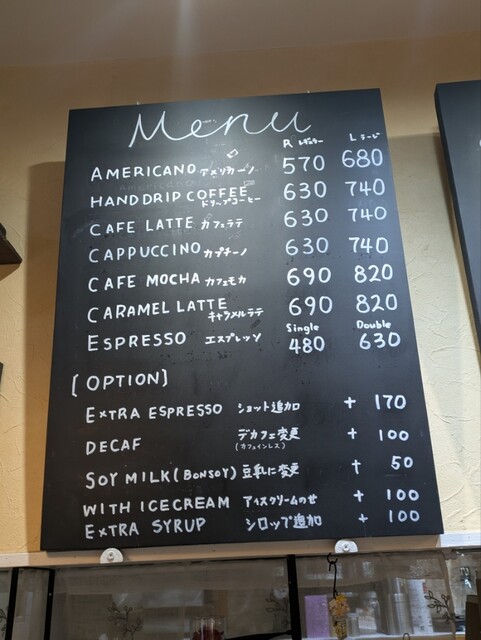 Menu
R レギュラー L ラージ
AMERICANO アメリカーノ 570 680
HAND DRIP COFFEE ドリップコーヒー 630 740
CAFE LATTE カフェラテ 630 740
CAPPUCCINO カプチーノ 630 740
CAFE MOCHA カフェモカ 690 820
CARAMEL LATTE キャラメルラテ 690 820
Single Double
ESPRESSO エスプレッソ 480 630
[OPTION]
EXTRA ESPRESSO ショット追加 + 170
DECAF デカフェ変更 + 100
(カフェインレス)
SOY MILK (BONSOY) 豆乳に変更 + 50
WITH ICECREAM アイスクリームのせ + 100
EXTRA SYRUP シロップ追加 + 100